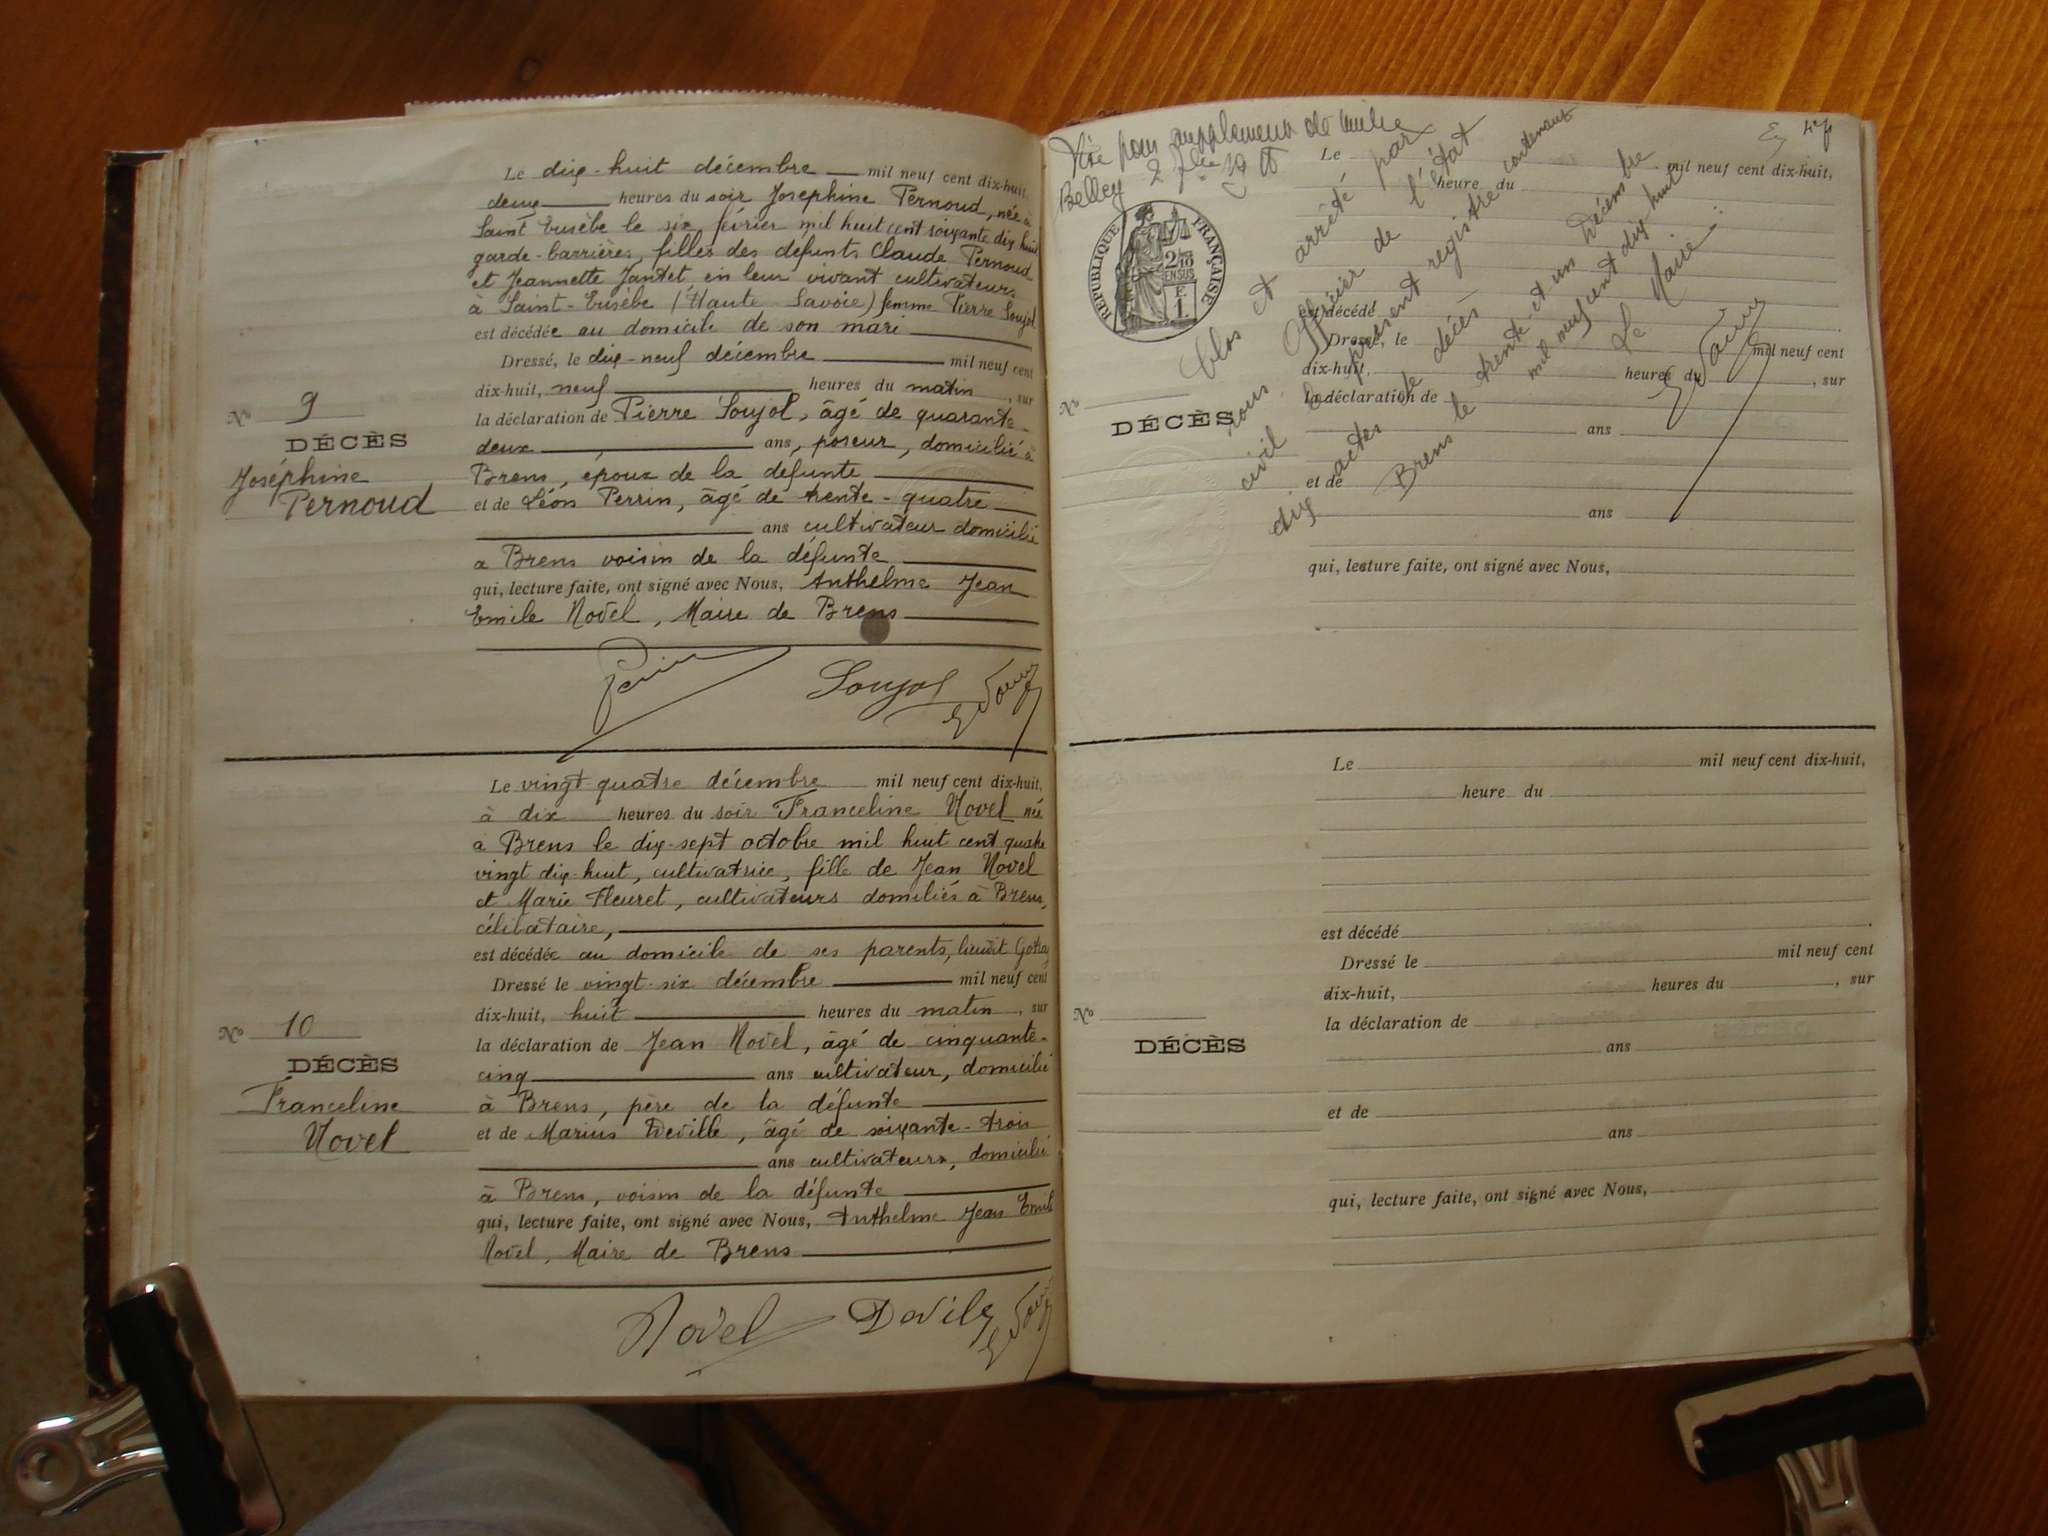 Le dix-huit décembre mil neuf cent dix-huit,
deux heures du soir Joséphine Pernoud, née à
Saint Eusèbe le six février mil huit cent soixante dix huit
garde-barrières, filles des défunts Claude Pernoud
et Jeannette Jantet, en leur vivant cultivateurs
à Saint-Eusèbe (Haute Savoie) femme Pierre Soujol
est décédée au domicile de son mari
Dressé, le dix-neuf décembre mil neuf cent
dix-huit, neuf heures du matin, sur
la déclaration de Pierre Soujol, âgé de quarante
deux ans, poseur, domicilié à
Brens, époux de la défunte
et de Léon Perrin, âgé de trente-quatre
ans cultivateur domicilié
à Brens voisin de la défunte
qui, lecture faite, ont signé avec Nous, Anthelme Jean
Emile Novel, Maire de Brens
Nº 9
DÉCÈS
Joséphine
Pernoud
Perrin Soujol
Le vingt-quatre décembre mil neuf cent dix-huit,
à dix heures du soir Franceline Novel née
à Brens le dix-sept octobre mil huit cent quatre
vingt dix-huit, cultivatrice, fille de Jean Novel
et Marie Fleuret, cultivateurs domiliés à Brens,
célibataire,
est décédée au domicile de ses parents, lieudit
Dressé le vingt-six décembre mil neuf cent
dix-huit, huit heures du matin, sur
la déclaration de Jean Novel, âgé de cinquante-
cinq ans cultivateur, domicilié
à Brens, père de la défunte
et de Marius Deville, âgé de soixante-trois
ans cultivateurs, domicilié
à Brens, voisin de la défunte
qui, lecture faite, ont signé avec Nous, Anthelme Jean Emile
Novel, Maire de Brens
Nº 10
DÉCÈS
Franceline
Novel
Novel Devile
Visé pour supplément de timbre
Belley 2
RÉPUBLIQUE FRANÇAISE
F.
1.
Clos et arrêté par
nous Officier de l'État
civil le présent registre contenant
dix actes de décès
Brens le trente-et-un Décembre
mil neuf cent dix huit
Le Maire
Le mil neuf cent dix-huit,
heure du
est décédé
Dressé, le mil neuf cent
dix-huit, heures du , sur
la déclaration de
ans
et de
ans
qui, lecture faite, ont signé avec Nous,
Nº
DÉCÈS
Le mil neuf cent dix-huit,
heure du
est décédé
Dressé le mil neuf cent
dix-huit, heures du , sur
la déclaration de
ans
et de
ans
qui, lecture faite, ont signé avec Nous,
Nº
DÉCÈS